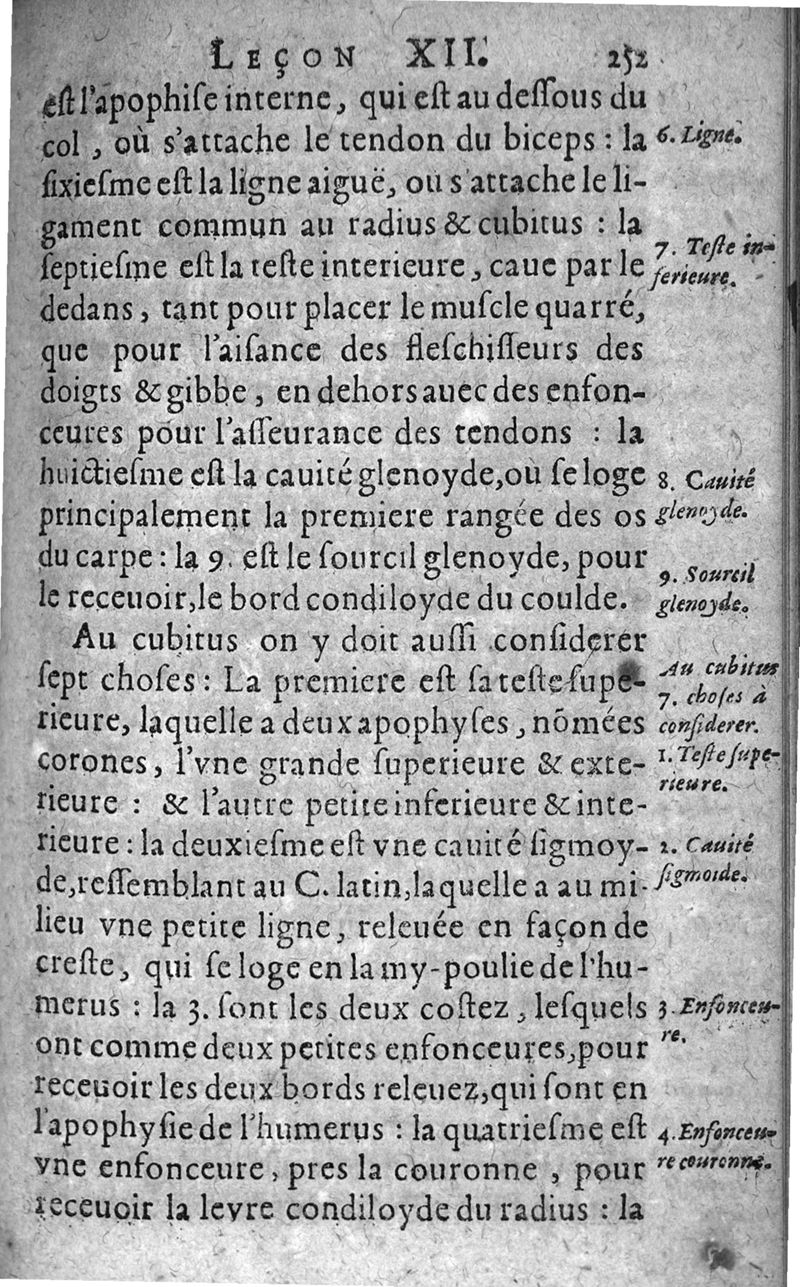 LEÇON XII. 252
eſt l'apophiſe interne, qui eſt au deſſous du
col, où s'attache le tendon du biceps : la
ſixieſme eſt la ligne aiguë, ou s'attache le li-
gament commun au radius & cubitus : la
ſeptieſme eſt la teſte interieure, caue par le
dedans, tant pour placer le muſcle quarré,
que pour l'aiſance des fleſchiſſeurs des
doigts & gibbe, en dehors auec des enfon-
ceures pour l'aſſeurance des tendons : la
huictieſme eſt la cauité glenoyde, ou ſe loge
principalement la premiere rangée des os
du carpe : la 9. eſt le ſourcil glenoyde, pour
le receuoir, le bord condiloyde du coulde.
Au cubitus on y doit auſſi conſiderer
ſept choſes : La premiere eſt ſa teſte ſupe-
rieure, laquelle a deux apophyſes, nõmées
corones, l'vne grande ſuperieure & exte-
rieure : & l'autre petite inferieure & inte-
rieure : la deuxieſme eſt vne cauité ſigmoy-
de, reſſemblant au C. latin, laquelle a au mi-
lieu vne petite ligne, releuée en façon de
creſte, qui ſe loge en la my-poulie de l'hu-
merus : la 3. ſont les deux coſtez, leſquels
ont comme deux petites enfonceures, pour
receuoir les deux bords releuez, qui ſont en
l'apophyſie de l'humerus : la quatrieſme eſt
vne enfonceure, pres la couronne, pour
receuoir la levre condiloyde du radius : la
6. Ligne.
7. Teſte in-
ferieure.
8. Cauité
glenoyde.
9. Sourcil
glenoyde.
Au cubitus
7. choſes à
conſiderer.
1. Teſte ſupe-
rieure.
2. Cauité
ſigmoide.
3. Enfonceu-
re.
4. Enfonceu-
re couronne.